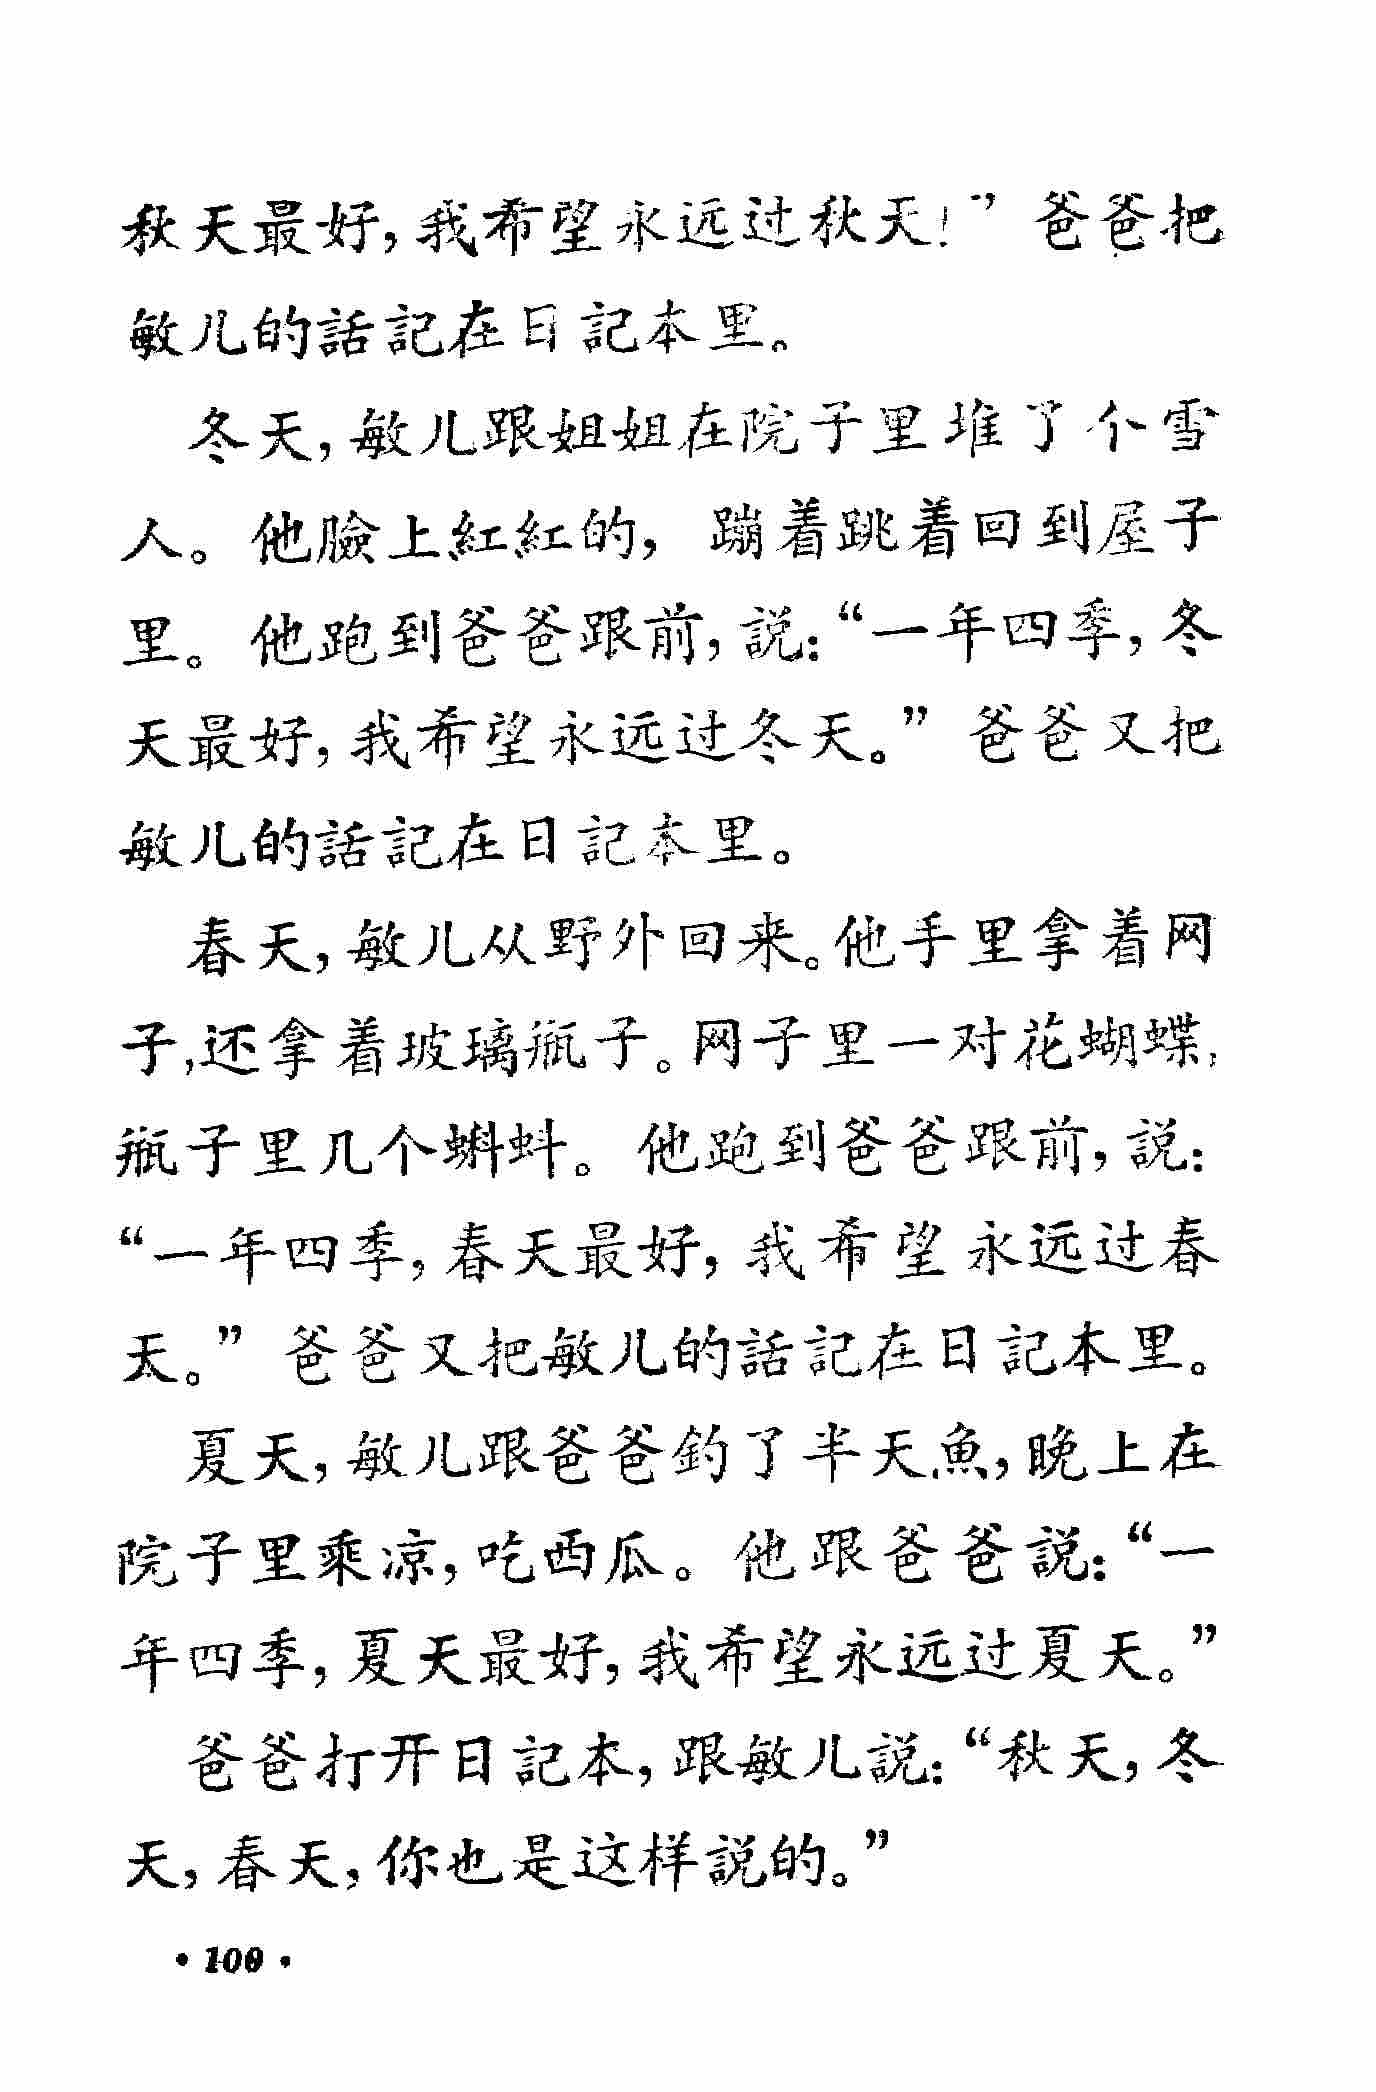 秋天最好，我希望永远过秋天！”爸爸把
敏儿的話記在日記本里。
冬天，敏儿跟姐姐在院子里堆了个雪
人。他臉上紅紅的，蹦着跳着回到屋子
里。他跑到爸爸跟前，説：“一年四季，冬
天最好，我希望永远过冬天。”爸爸又把
敏儿的話記在日記本里。
春天，敏儿从野外回来。他手里拿着网
子，还拿着玻璃瓶子。网子里一对花蝴蝶，
瓶子里几个蝌蚪。他跑到爸爸跟前，説：
“一年四季，春天最好，我希望永远过春
天。”爸爸又把敏儿的話記在日記本里。
夏天，敏儿跟爸爸釣了半天魚，晚上在
院子里乘凉，吃西瓜。他跟爸爸説：“一
年四季，夏天最好，我希望永远过夏天。”
爸爸打开日記本，跟敏儿説：“秋天，冬
天，春天，你也是这样説的。”